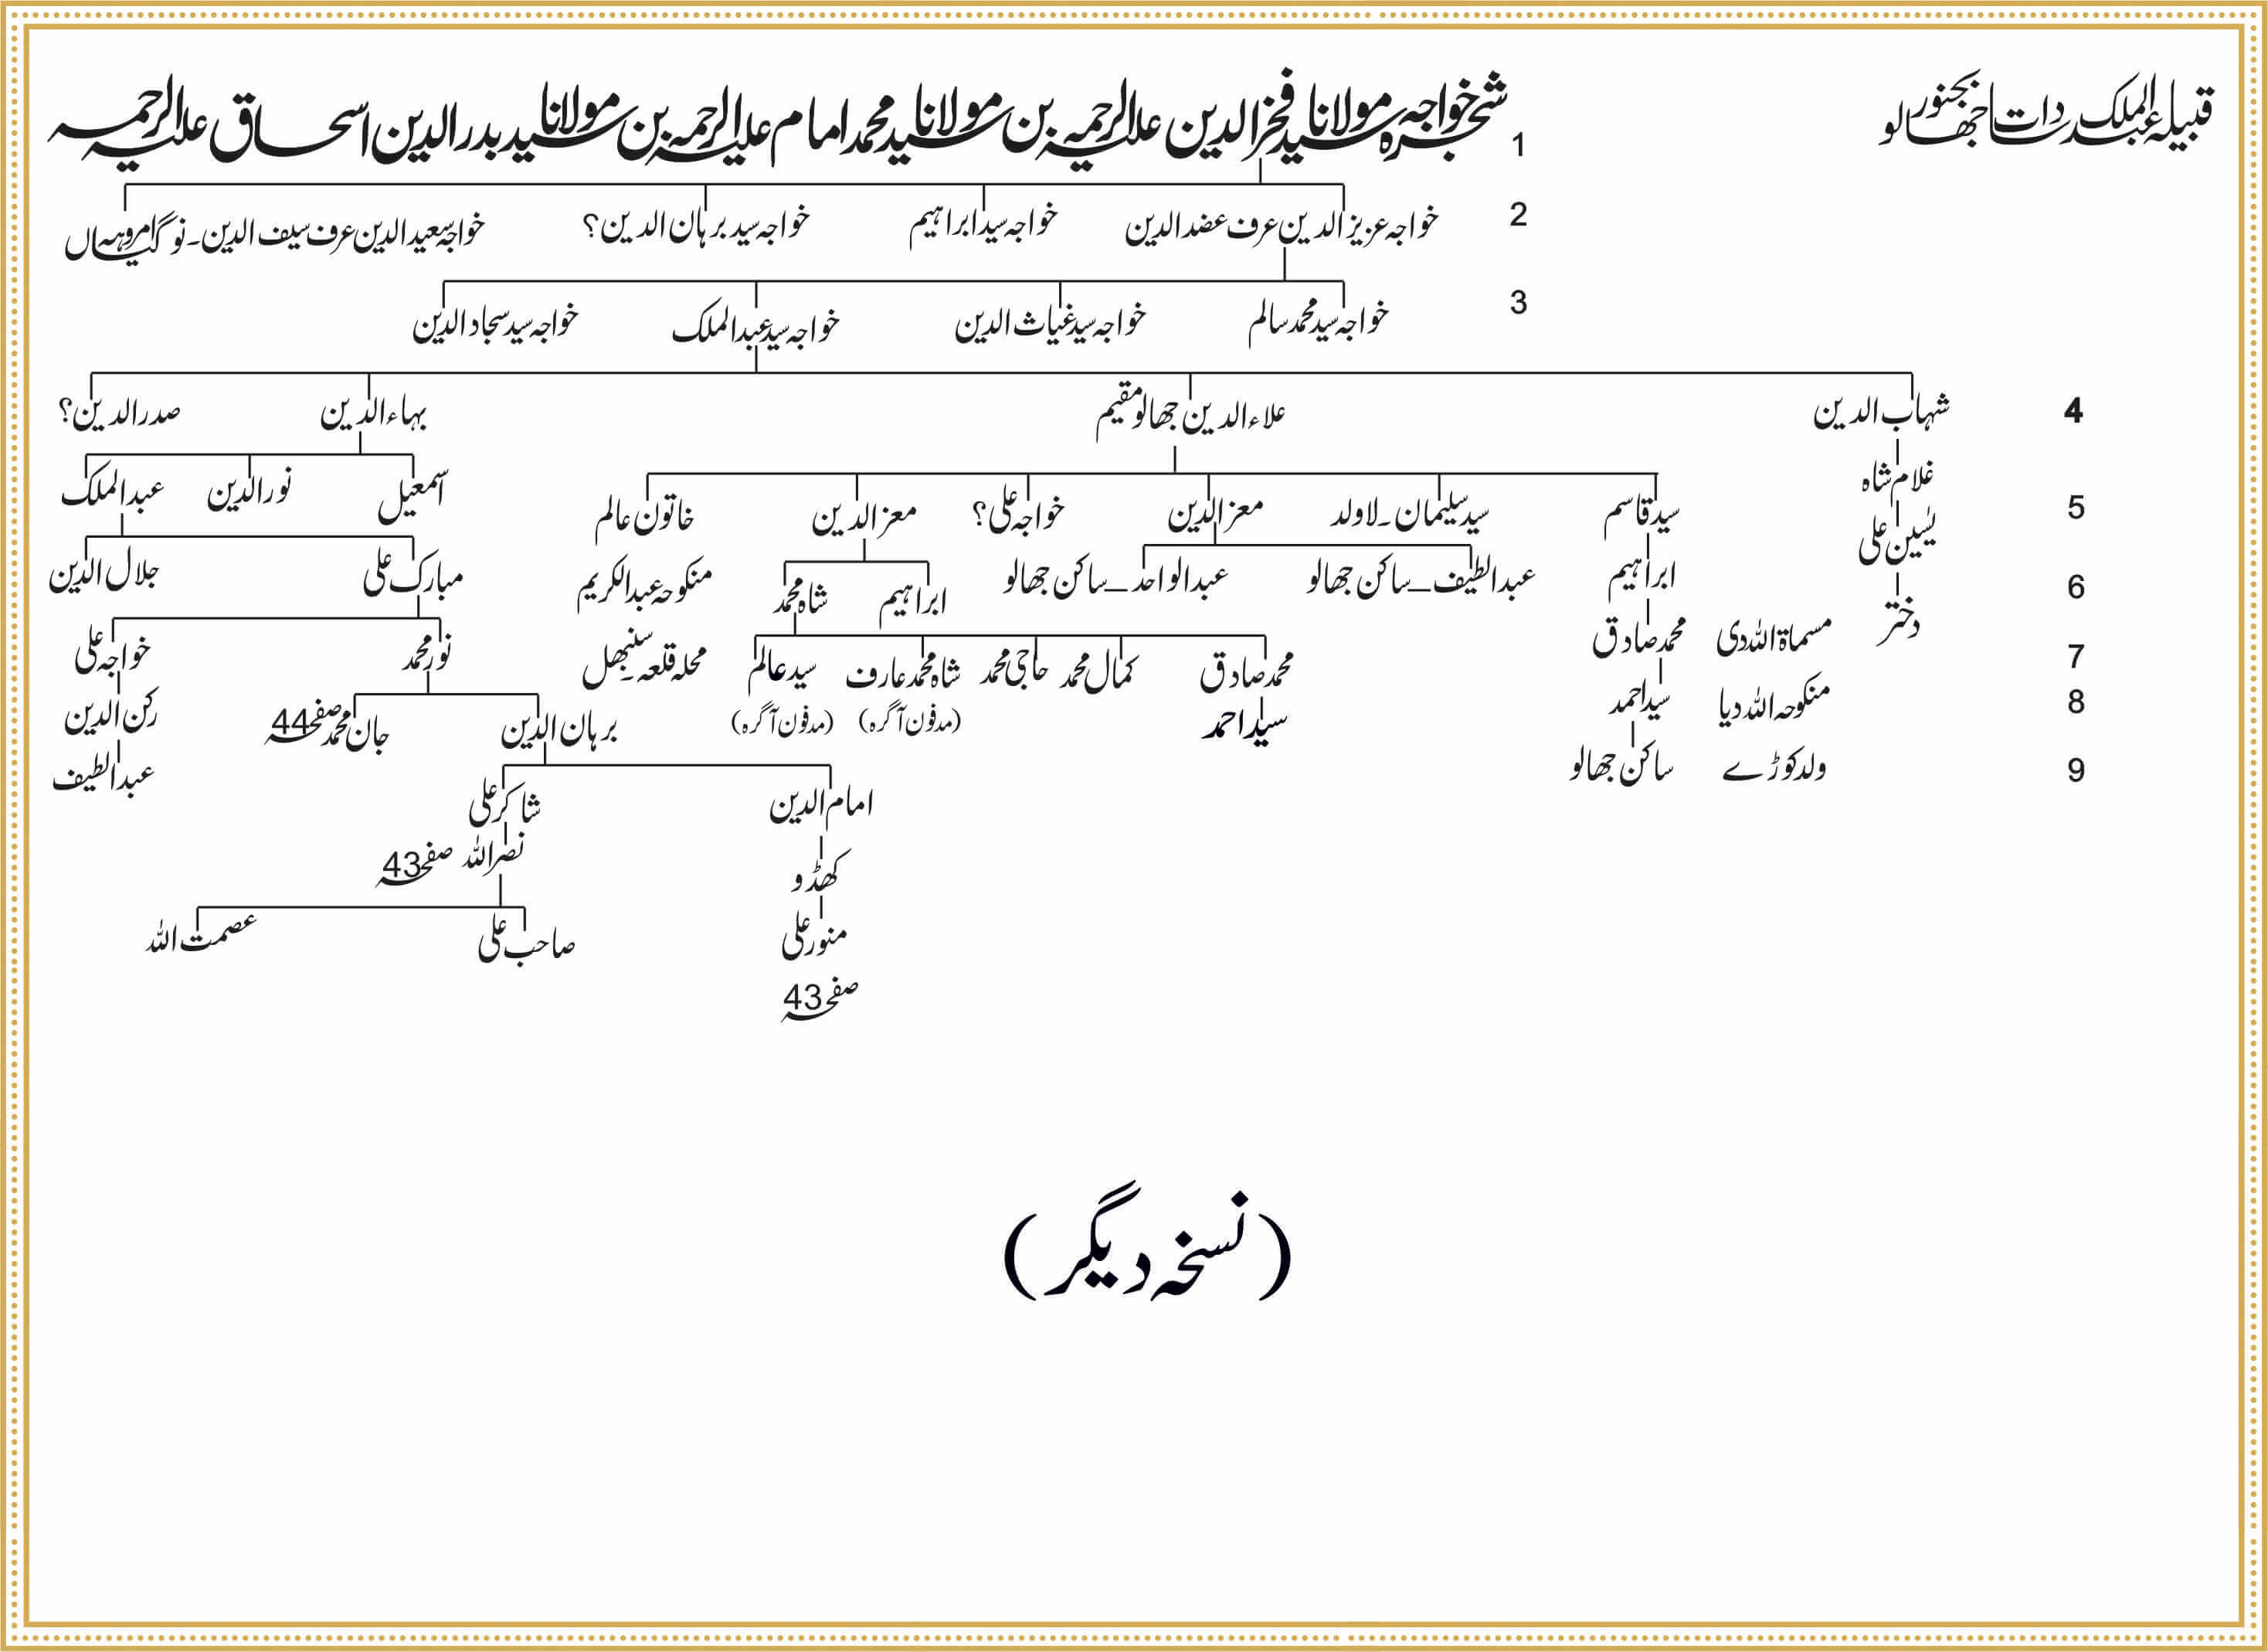 قبیلہ عبدالملک سادات جھالو بجنور
شجرہ خواجہ مولانا سید فخرالدین علیہ الرحمہ بن مولانا سید محمد امام علیہ الرحمہ بن مولانا سید بدرالدین اسحاق علیہ الرحمہ 1
خواجہ عزیزالدین عرف عضدالدین خواجہ سید ابراہیم خواجہ سید برہان الدین؟ خواجہ سعیدالدین عرف سیف الدین۔ نوگیاں امروہہ 2
خواجہ سید محمد سالم خواجہ سید غیاث الدین خواجہ سید عبدالملک خواجہ سید سجادالدین 3
شہاب الدین علاءالدین جھالو مقیم بہاءالدین صدرالدین؟ 4
غلام شاہ
سید قاسم سید سلیمان۔لاولد معزالدین خواجہ علی؟ معزالدین خاتون عالم اسمعیل نورالدین عبدالملک 5
یٰسین علی
ابراہیم عبدالطیف_ساکن جھالو عبدالواحد_ساکن جھالو ابراہیم شاہ محمد منکوحہ عبدالکریم مبارک علی جلال الدین 6
دختر مسماۃ اللہ دی محمد صادق
محمد صادق کمال محمد حاجی محمد شاہ محمد عارف سید عالم محلہ قلعہ۔سنبھل نور محمد خواجہ علی 7
منکوحہ اللہ دیا سید احمد سید احمد (مدفون آگرہ) (مدفون آگرہ) برہان الدین جان محمد صفحہ 44 رکن الدین 8
ولد کوڑے ساکن جھالو امام الدین شاکر علی عبدالطیف 9
کھڈو نصراللہ صفحہ 43
منور علی صاحب علی عصمت اللہ
صفحہ 43
(نسخہ دیگر)